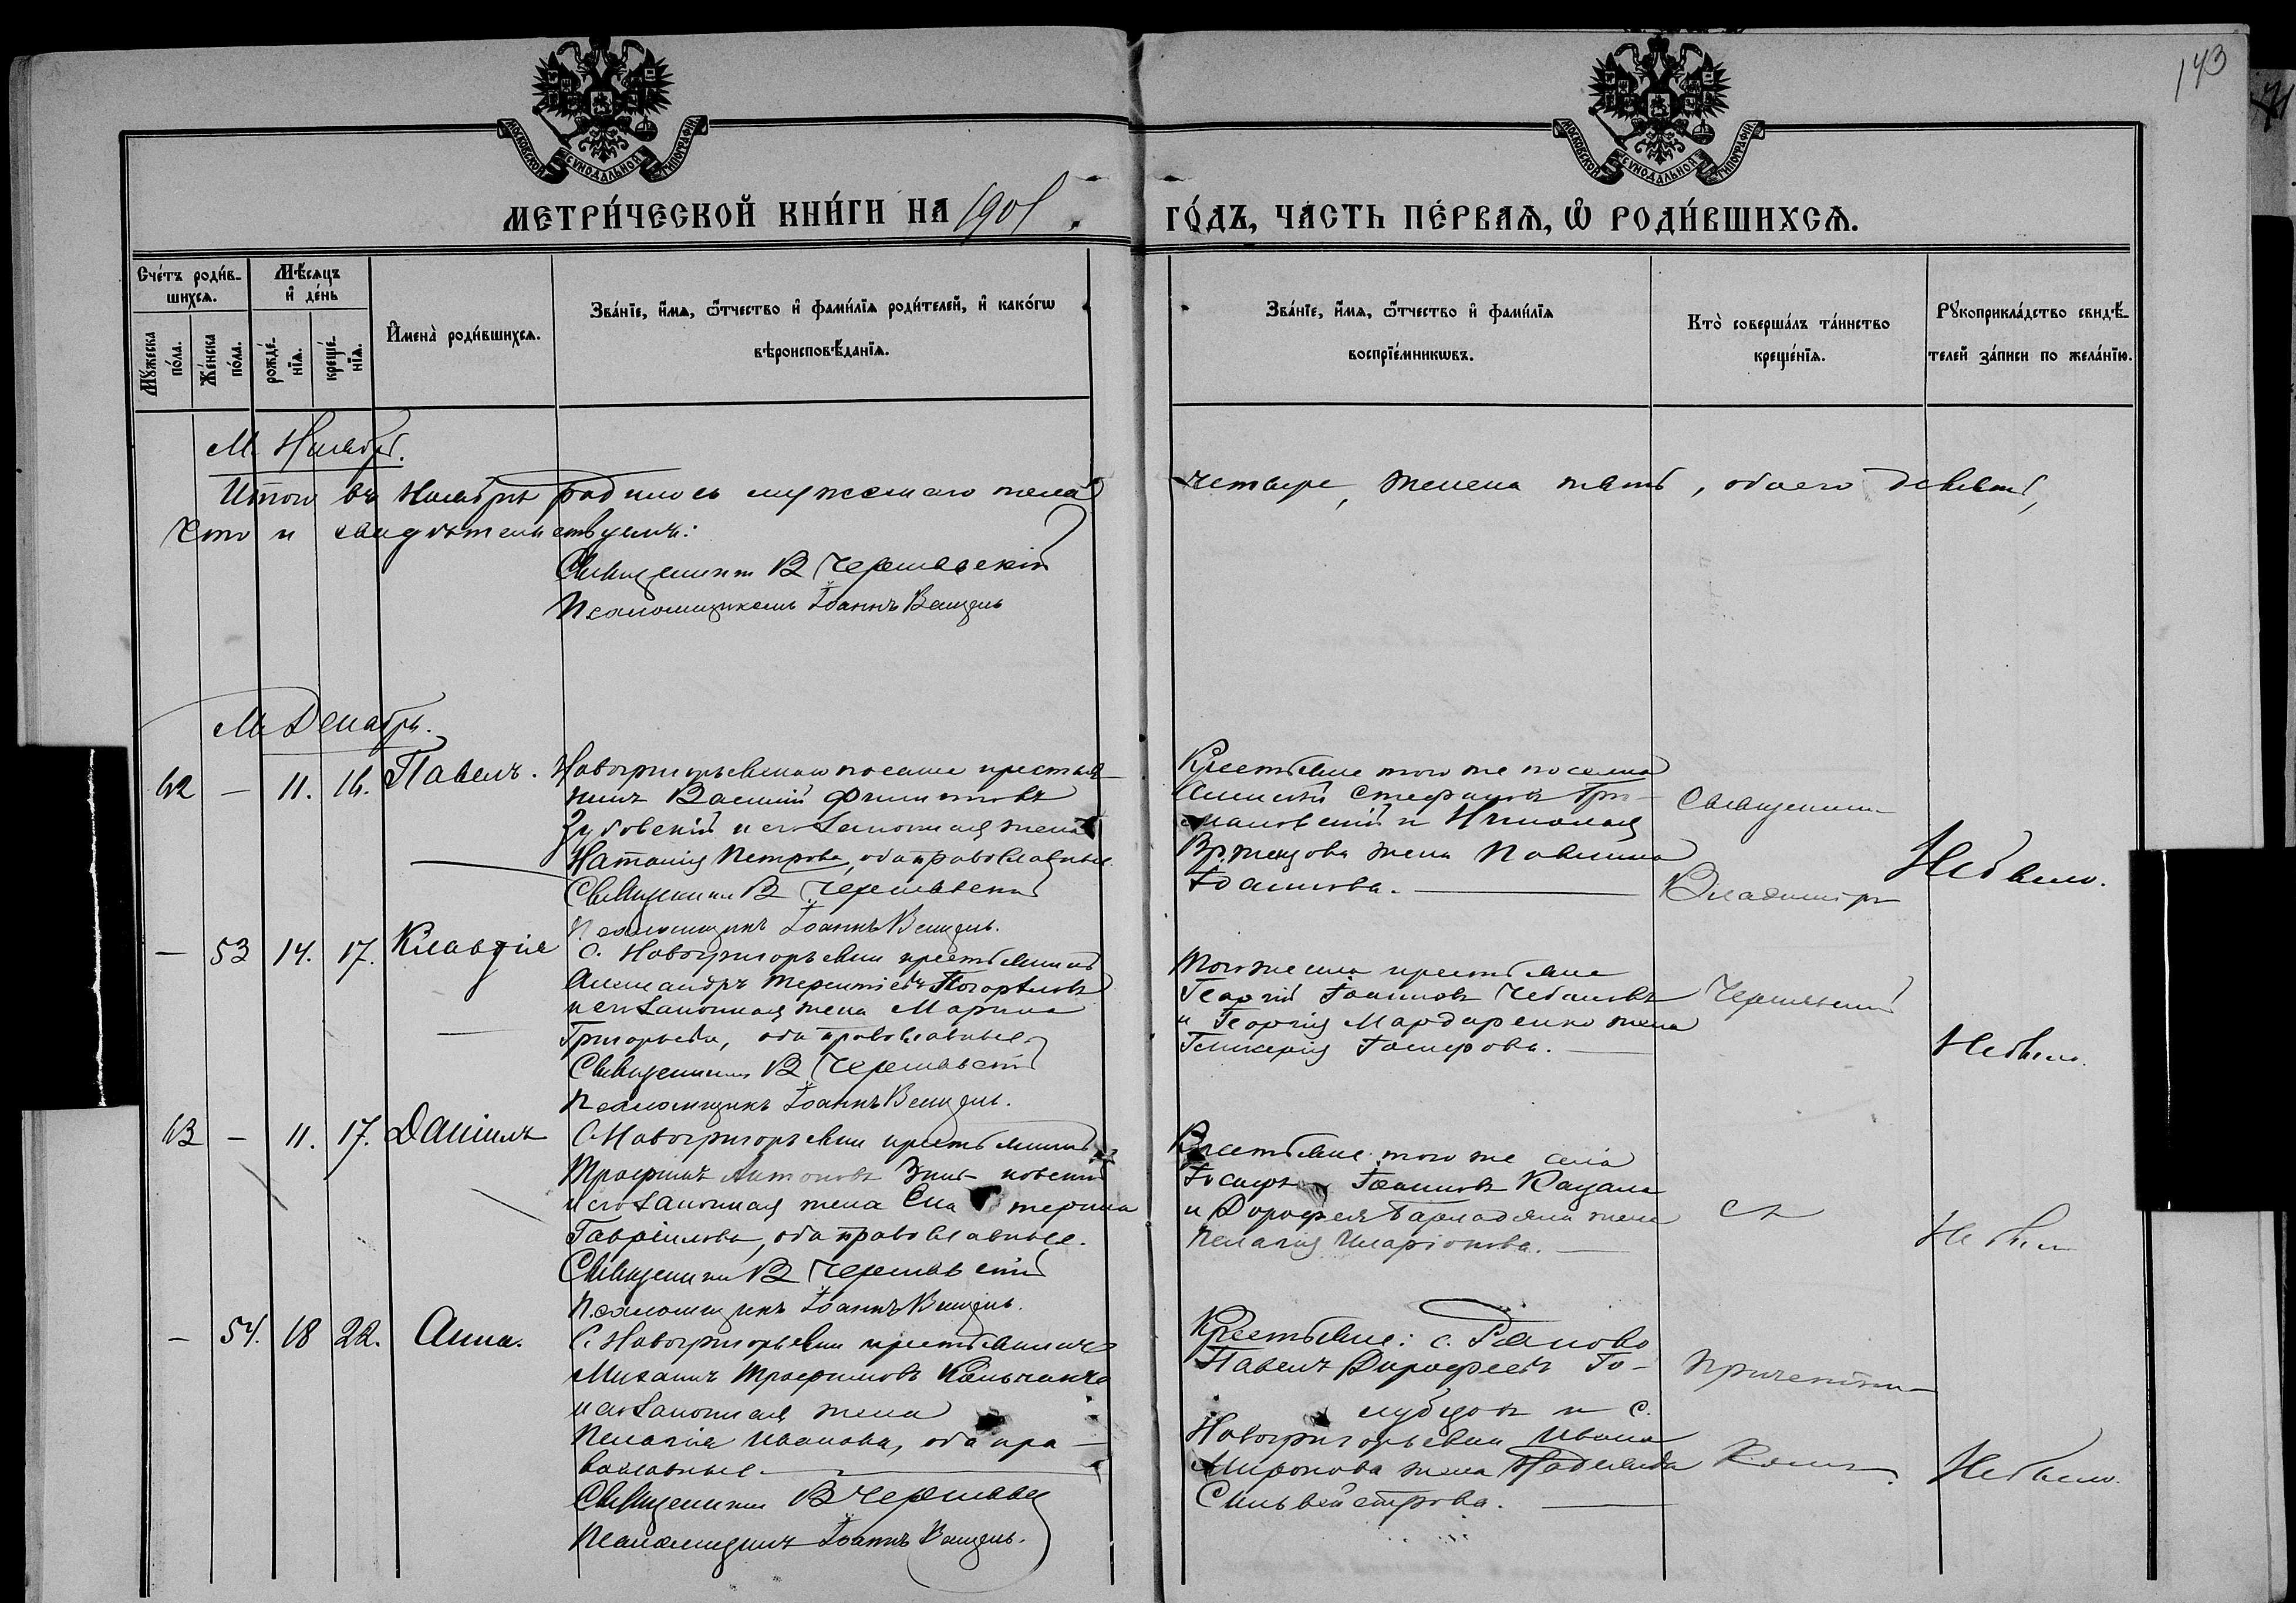 143
МОСКОВСКОЙ СѴНОДАЛЬНОЙ ТИПОГРАФІИ
МОСКОВСКОЙ СѴНОДАЛЬНОЙ ТИПОГРАФІИ
МЕТРИ́ЧЕСКОЙ КНИ́ГИ НА 1901
ГО́ДЪ, ЧА́СТЬ ПЕ́РВАѦ, Ѡ҆ РОДИ́ВШИХСѦ.
Сче́тъ роди́в-
шихсѧ.
Мꙋ́жеска по́ла.
Же́нска по́ла.
Мѣ́сѧцъ
и҆ де́нь
рожде́-
нїѧ.
креще́-
нїѧ.
И҆мена̀ роди́вшихсѧ.
Зва́нїе, и҆́мѧ, ѻ҆́тчество и҆ фами́лїѧ роди́телей, и҆ како́гѡ
вѣроисповѣ́данїѧ.
Зва́нїе, и҆́мѧ, ѻ҆́тчество и҆ фами́лїѧ
воспрїе́мникѡвъ.
Кто̀ соверша́лъ та́инство
креще́нїѧ.
Рꙋкоприкла́дство свидѣ́-
телей за́писи по жела́нїю.
М. Ноябрь.
Итого въ Ноябрѣ родилось мужескаго пола
четыре, женска пять, обоего девять,
что и свидѣтельствуемъ:
Священникъ В Чернявскій
Псаломщикъ Іоаннъ
М. Декабрь.
62 — 11. 16. Павелъ.
Новогригорьевскаго поселка крестья-
нинъ Василій Филиповъ
Зубовскій и его законная жена
Наталія Петрова, оба православные.
Священникъ В Чернявскій
Псаломщикъ Іоаннъ
Крестьяне того же поселка
Алексѣй Стефановъ
и Николая
жена Павлина
Іоаннова.
Священникъ
Владиміръ
Не было.
— 53 14. 17. Клавдія
С. Новогригорьевки крестьянинъ
Александръ Терентіевъ Погорѣловъ
и его законная жена Марина
Григорьева, оба православные
Священникъ В Чернявскій
Псаломщикъ Іоаннъ
Того же села крестьяне
Георгій Іоанновъ Чебановъ
и Георгія Мардаренко жена
Гликерія Іосифова.
Чернявскій
Не было.
63 — 11. 17. Даніилъ
С. Новогригорьевки крестьянинъ
Трофимъ Антоновъ
и его законная жена Екатерина
Гавріилова, оба православные.
Священникъ В Чернявскій
Псаломщикъ Іоаннъ
Крестьяне того же села
Іосифъ Іоанновъ
и Дорофея жена
Пелагія Иларіонова.
съ
Не было
— 54. 18 22. Анна.
С. Новогригорьевки крестьянинъ
Михаилъ Трофимовъ
и его законная жена
Пелагія Иванова, оба пра-
вославные.
Священникъ В Чернявск
Псаломщикъ Іоаннъ
Крестьяне: с.
Павелъ Дорофеевъ Го-
лубцовъ и с.
Новогригорьевки Ивана
Миронова жена Надежда
Сильвестрова.
причетни-
комъ.
Не было.